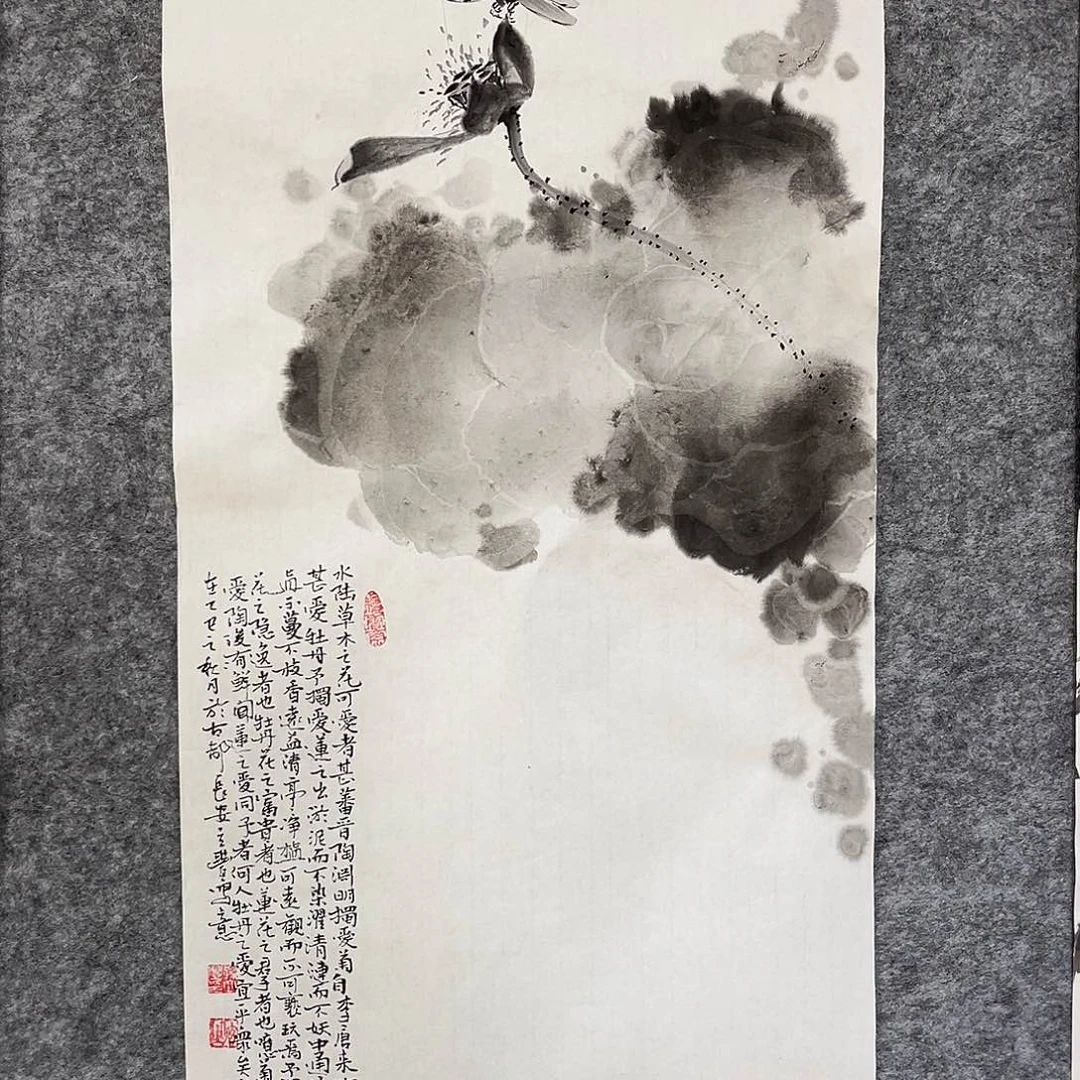 水陆草木之花可爱者甚蕃晋陶渊明獨愛菊自李唐来
甚愛牡丹予獨愛蓮之出淤泥而不染濯清漣而不妖中通
不蔓不枝香遠益清亭亭净植可遠觀而不可褻玩焉予
花之隐逸者也牡丹花之富貴者也蓮花之君子者也噫菊
愛陶後有鮮闻蓮之愛同予者何人牡丹之愛宜乎衆矣
之秋月於古都長安